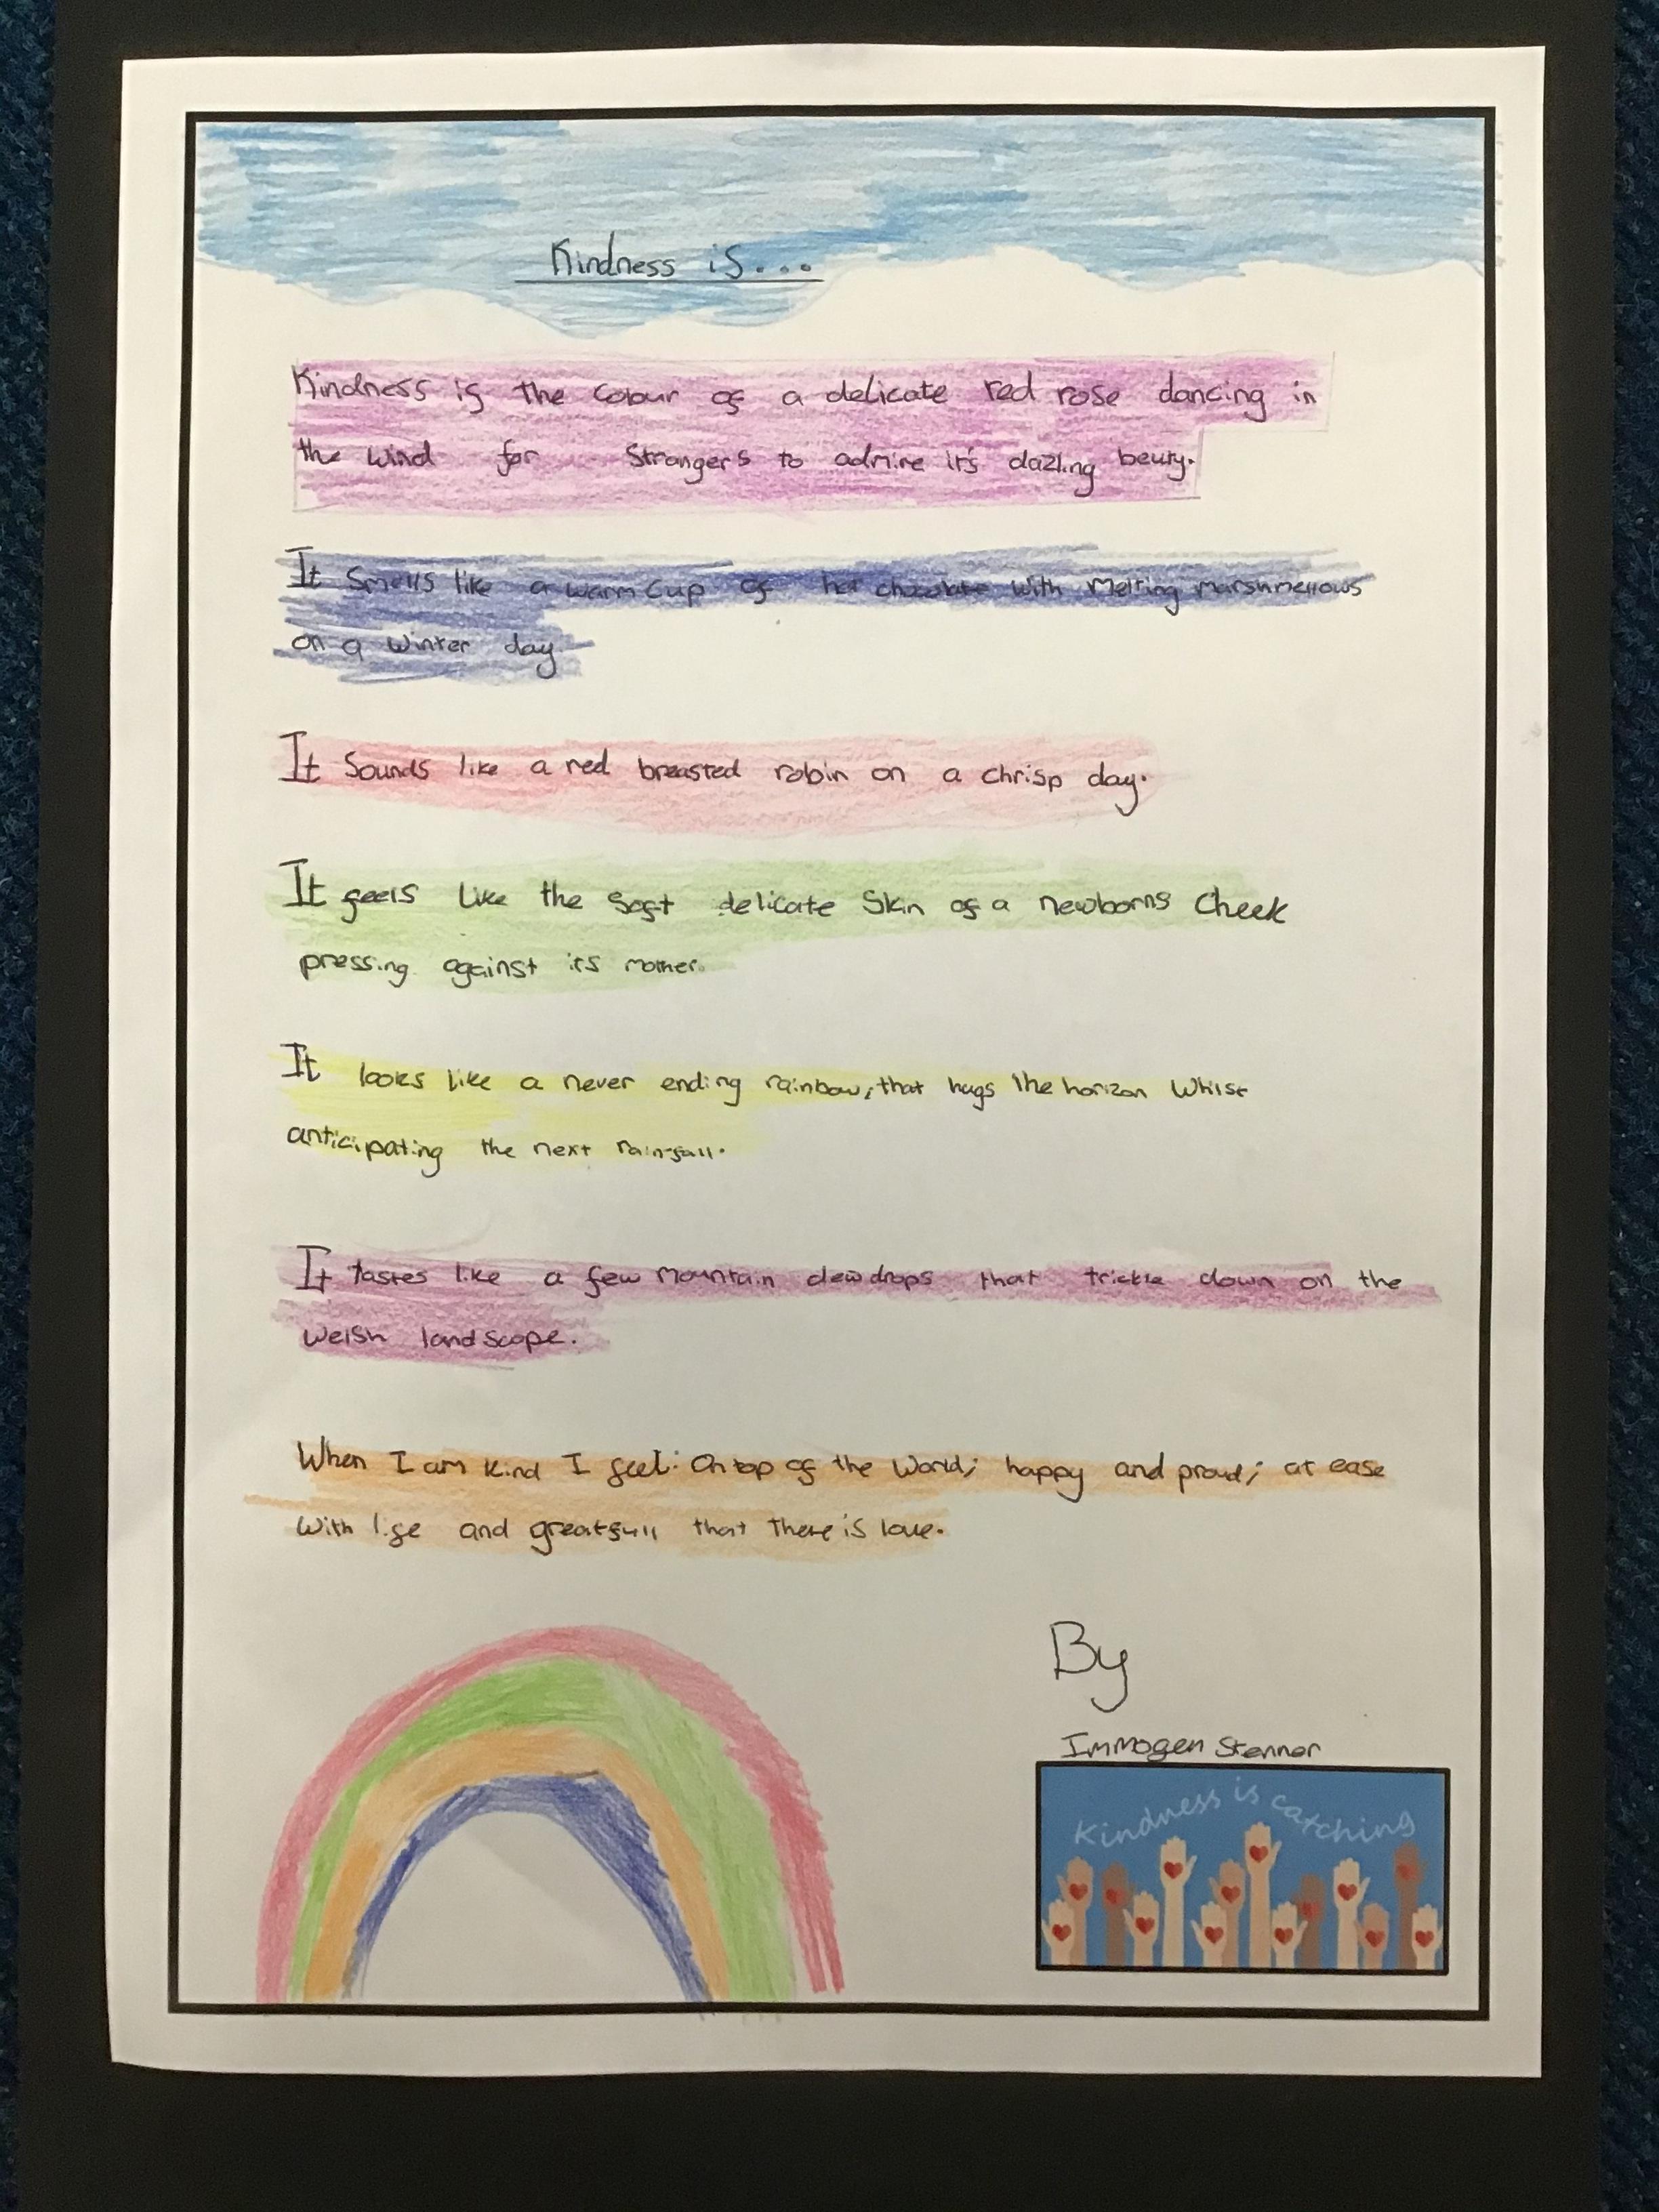 Kindness is...
Kindness is the colour of a delicate red rose dancing in
the wind for Strangers to admire it's dazling beuty.
It Smells like a warm Cup of hot chocolate with Melting Marshmellows
on a winter day.
It Sounds like a red breasted robin on a chrisp day.
It feels like the Soft delicate Skin of a newborns Cheek
pressing against its mother.
It looks like a never ending rainbow, that hugs the horizon Whilst
anticipating the next rain-fall.
It tastes like a few Mountain dewdrops that trickle down on the
Welsh landscape.
When I am Kind I feel: On top of the World; happy and proud; at ease
With life and greatfull that there is love.
By
Immogen Stennor
Kindness is catching